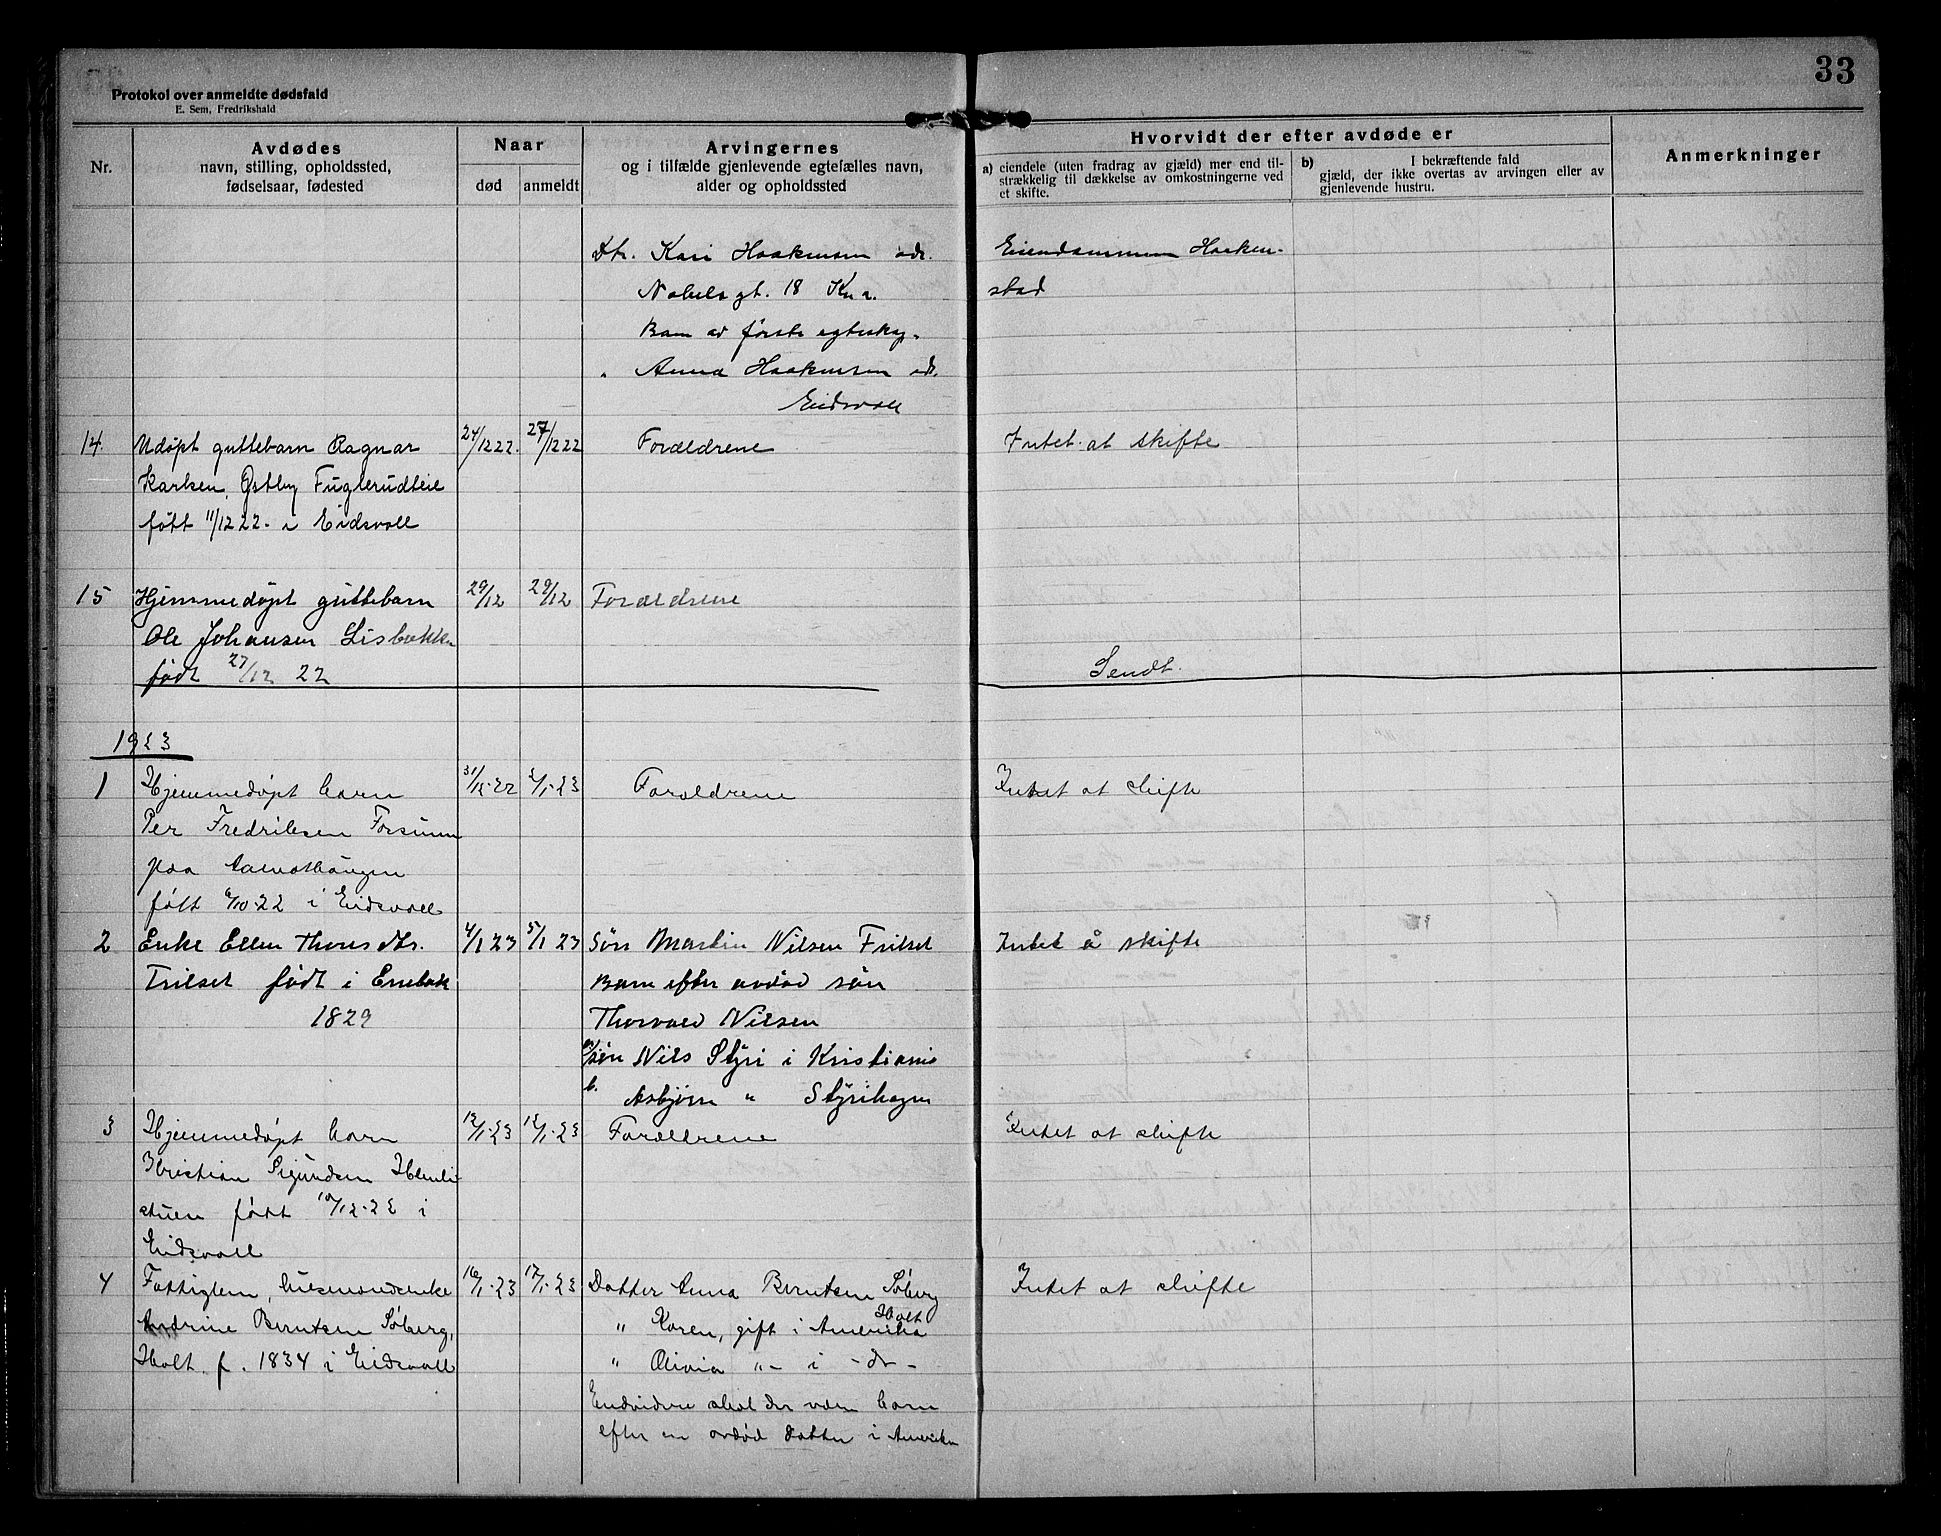 33
Protokol over anmeldte dødsfald
E. Sem, Fredrikshald
Nr.
Avdødes
navn, stilling, opholdssted,
fødselsaar, fødested
Naar
død
anmeldt
Arvingernes
og i tilfælde gjenlevende egtefælles navn,
alder og opholdssted
Hvorvidt der efter avdøde er
a) eiendele (uten fradrag av gjæld) mer end til-
strækkelig til dækkelse av omkostningerne ved
et skifte.
b) I bekræftende fald
gjæld, der ikke overtas av arvingen eller av
gjenlevende hustru.
Anmerkninger
Dtr. Kari Haakensen adr. Eiendommen Haaken-
Nobelsgt. 18 Kra. stad
Barn av første egteskap.
" Anna Haakensen adr.
Eidsvoll
14. Udøpt guttebarn Ragnar 24/12 22. 27/12 22 Forældrene Intet at skifte
Karlsen, Østby Fuglerudteie
født 11/12 22. i Eidsvoll
15 Hjemmedøpt guttebarn 29/12 29/12 Forældrene
Ole Johansen Lisbakken
født 27/12 22
Sendt.
1923
1 Hjemmedøpt barn 31/12.22 2/1.23 Forældrene Intet at skifte
Per Fredriksen Forsum
paa
født 6/10.22 i Eidsvoll
2 Enke Ellen Thorsdtr. 4/1 23 5/1 23 Søn Martin Nilsen Trilset Intet å skifte
Trilset født i Enebak Barn efter avdød søn
1829 Thorvald Nilsen
a/ søn Nils Styri i Kristiania
b. Asbjørn " Styrihagen
3 Hjemmedøpt barn 12/1.23 15/1.23 Forældrene Intet at skifte
Kristian Sigurdsen
stuen født 10/12.22 i
Eidsvoll
4 Fattiglem, husmandsenke 16/1.23 17/1.23 Datter Anna Berntsen Søberg Intet at skifte
Holt
Andrine Berntsen Søberg, " Karen, gift i Amerika
Holt f. 1834 i Eidsvoll " Olivia "- i -do-
Endvidere skal der være barn
efter en avdød datter i Amerika